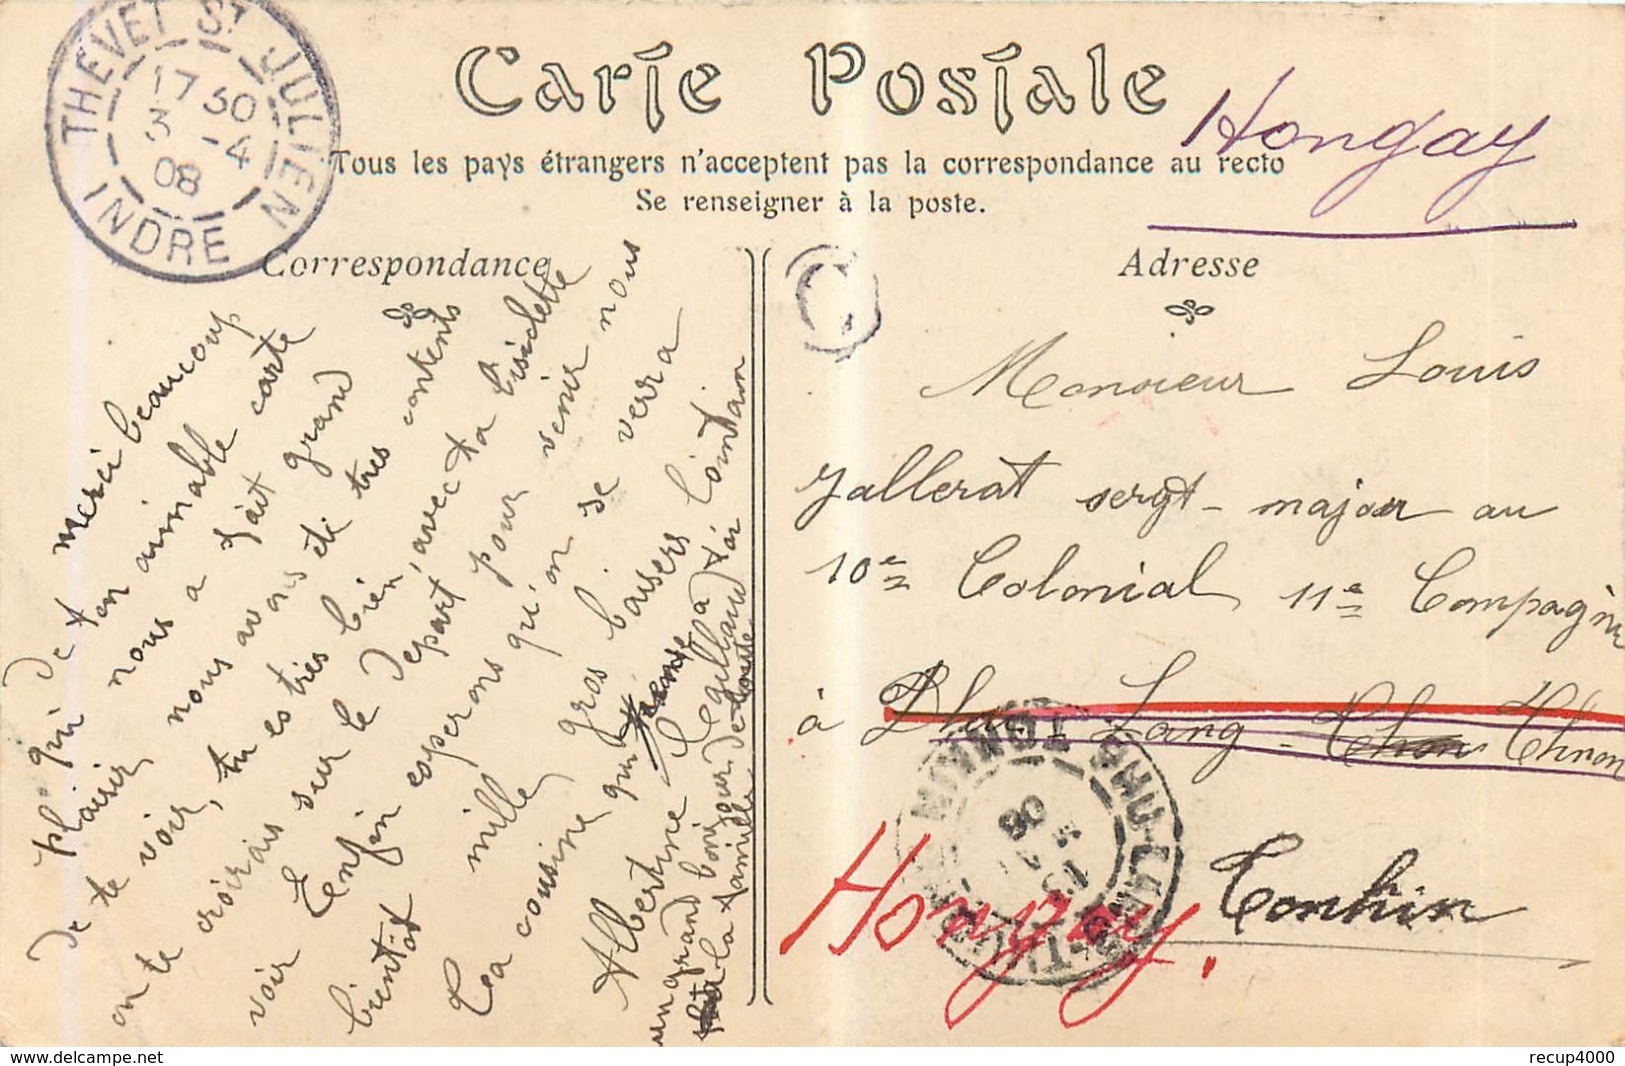 THEVET ST JULIEN
17 30
3 - 4
08
INDRE
Carte Postale
Hongay
Tous les pays étrangers n'acceptent pas la correspondance au recto
Se renseigner à la poste.
Correspondance
merci beaucoup
de ton aimable carte
qui nous a fait grand
plaisir, nous avons été très contents
de te voir, tu es très bien, avec ta bisiclette
on te croirais sur le départ pour venir nous
voir. Enfin esperons qu'on se verra
bientôt mille gros baisers
Ta cousine qui
Albertine
un grand bonjour de
la famille
lointain
Adresse
Monsieur Louis
Jallerat sergt-major au
10e Colonial 11e Compagnie
à Phu Lang - Thon Thron
Tonkin
Hongay.
PHU-LANG-T
TONKIN
08
recup4000
www.delcampe.net